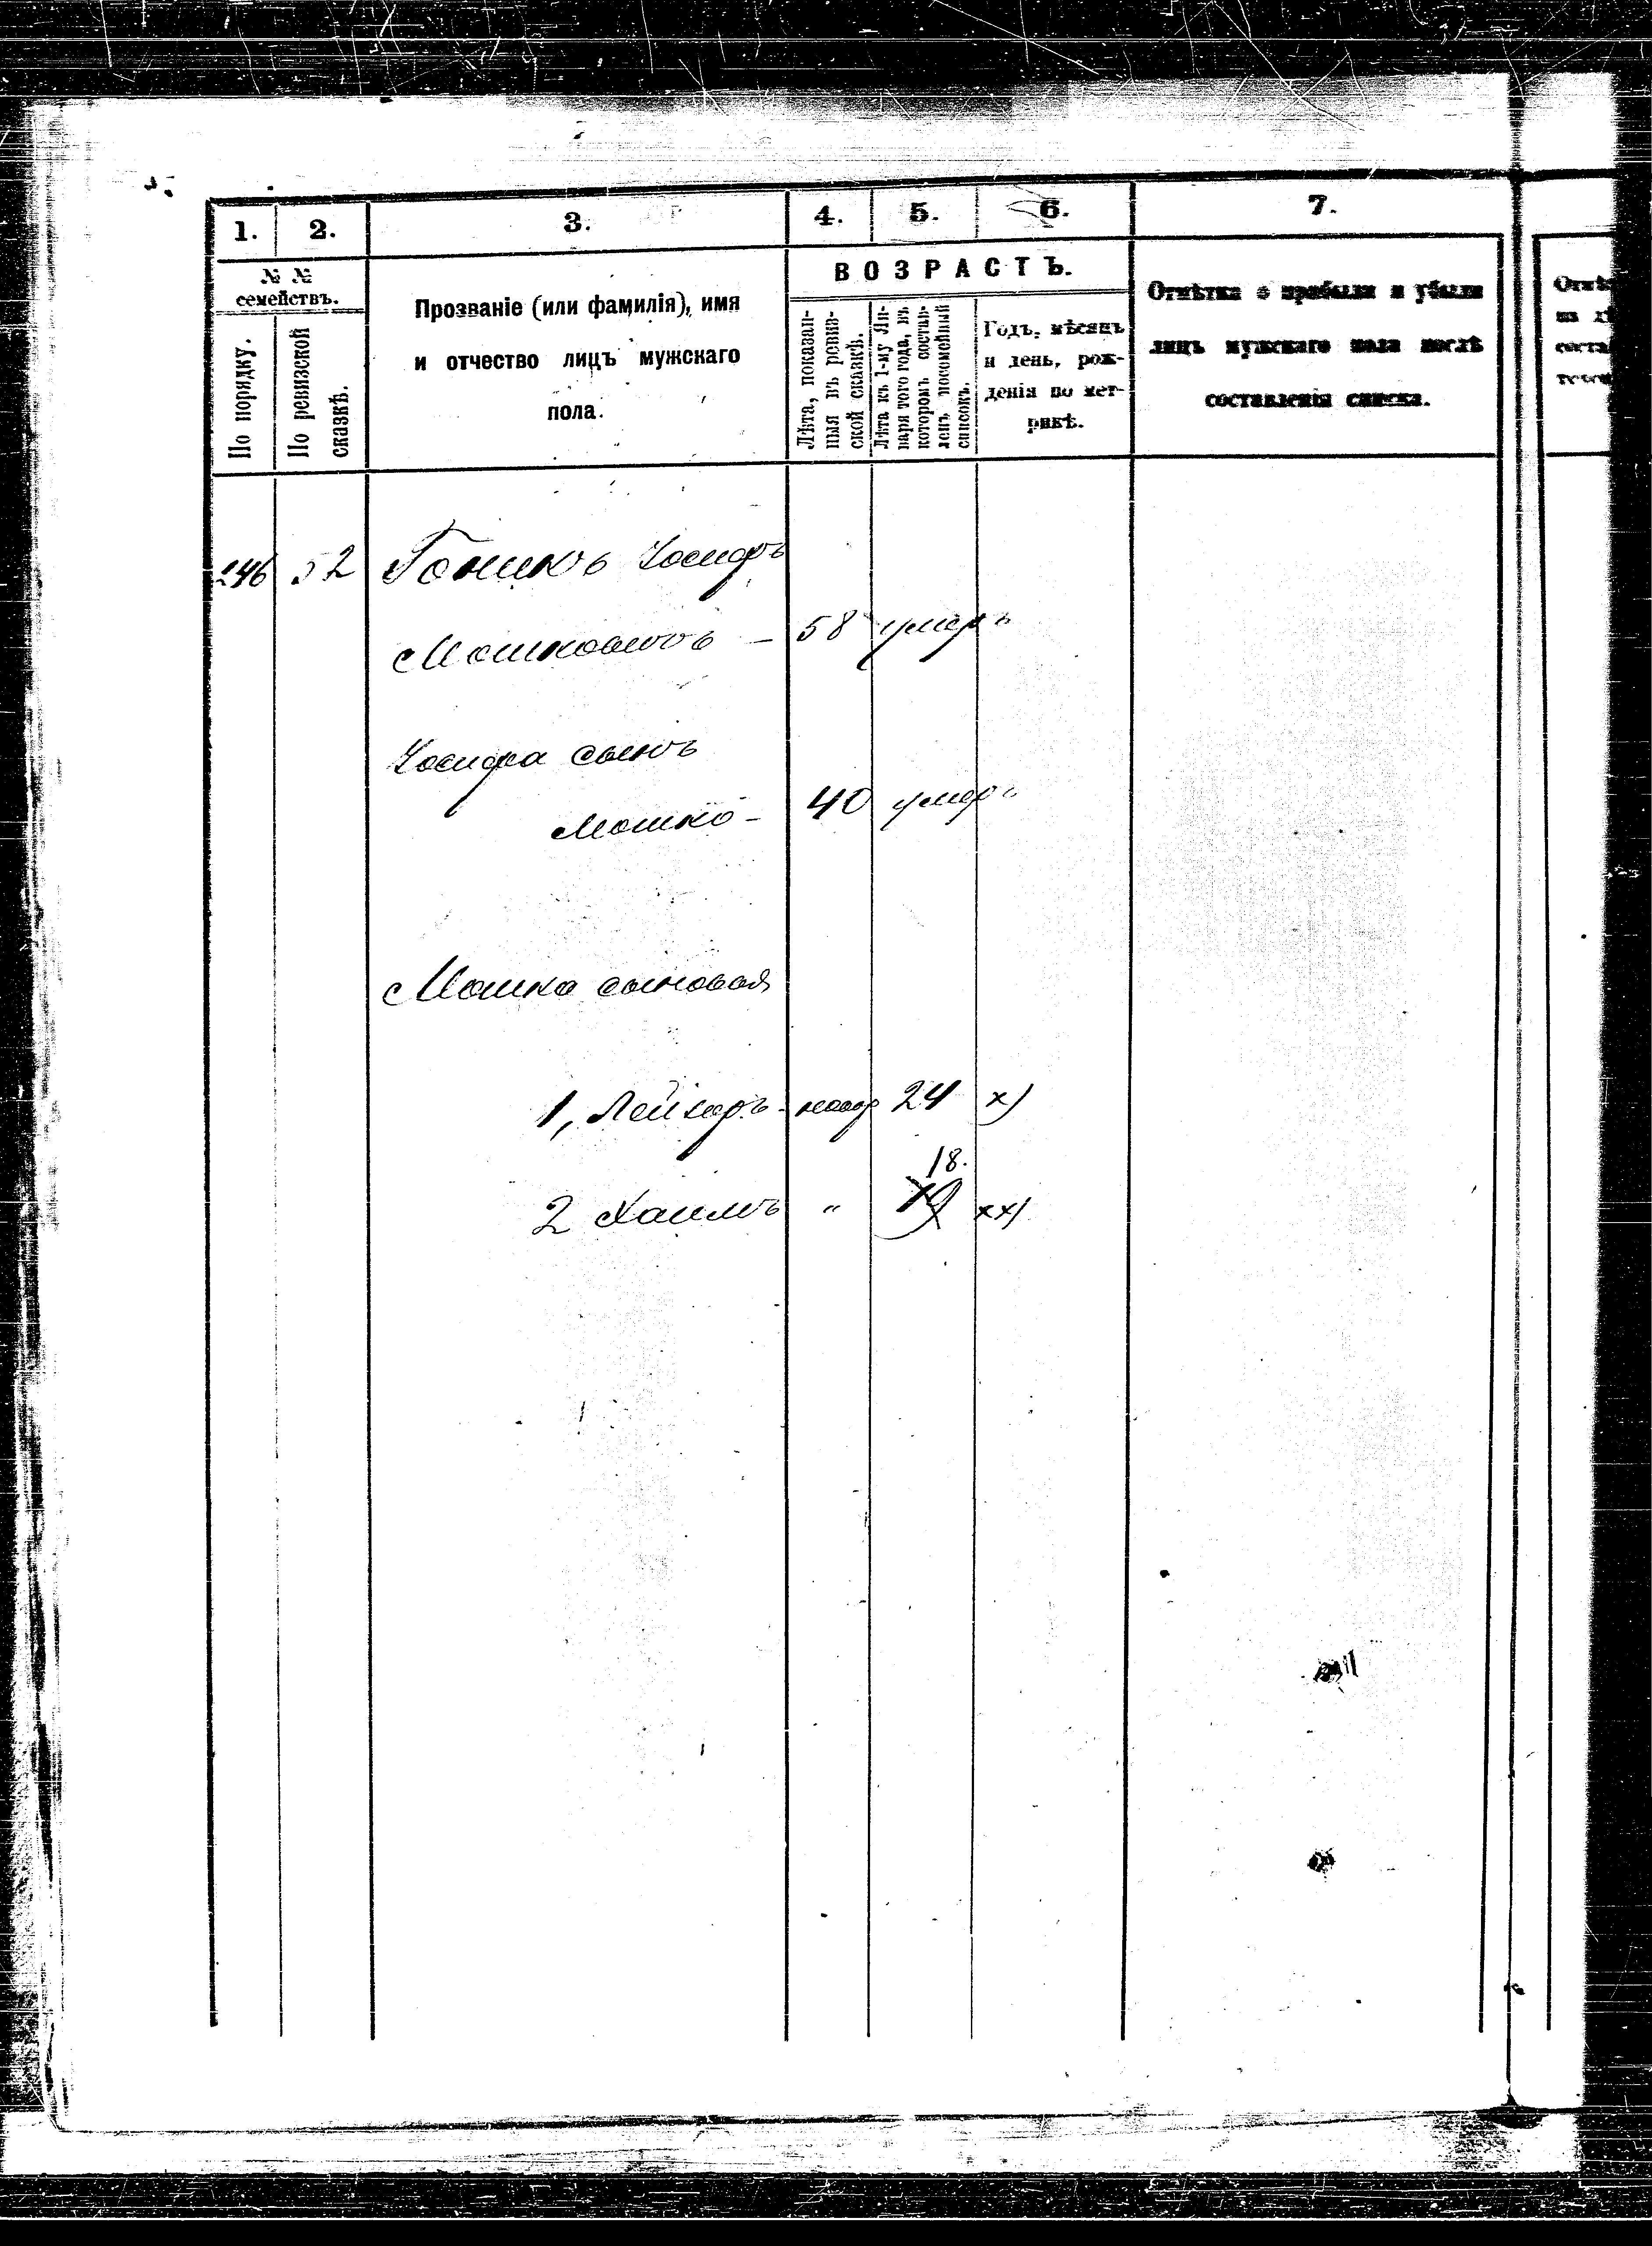 1. 2. 3. 4. 5. 6. 7.
№ №
семействъ.
По порядку.
По ревизской
сказкѣ.
Прозваніе (или фамилія), имя
и отчество лицъ мужскаго
пола.
ВОЗРАСТЪ.
Лѣта, показан-
ныя въ ревиз-
ской сказкѣ.
Лѣта къ 1-му Ян-
варя того года, въ
которомъ состав-
ленъ посемейный
списокъ.
Годъ, мѣсяцъ
и день, рож-
денія по мет-
рикѣ.
Отмѣтка о прибыли и убыли
лицъ мужскаго пола послѣ
составленія списка.
246 52 Гоникъ Іосифъ
Мошковичъ - 58 умеръ
Іосифа сынъ
Мошко - 40 умеръ
Мошка сыновья
1, Лейзеръ - 24 х)
18.
2 Хаимъ " 19 хх)